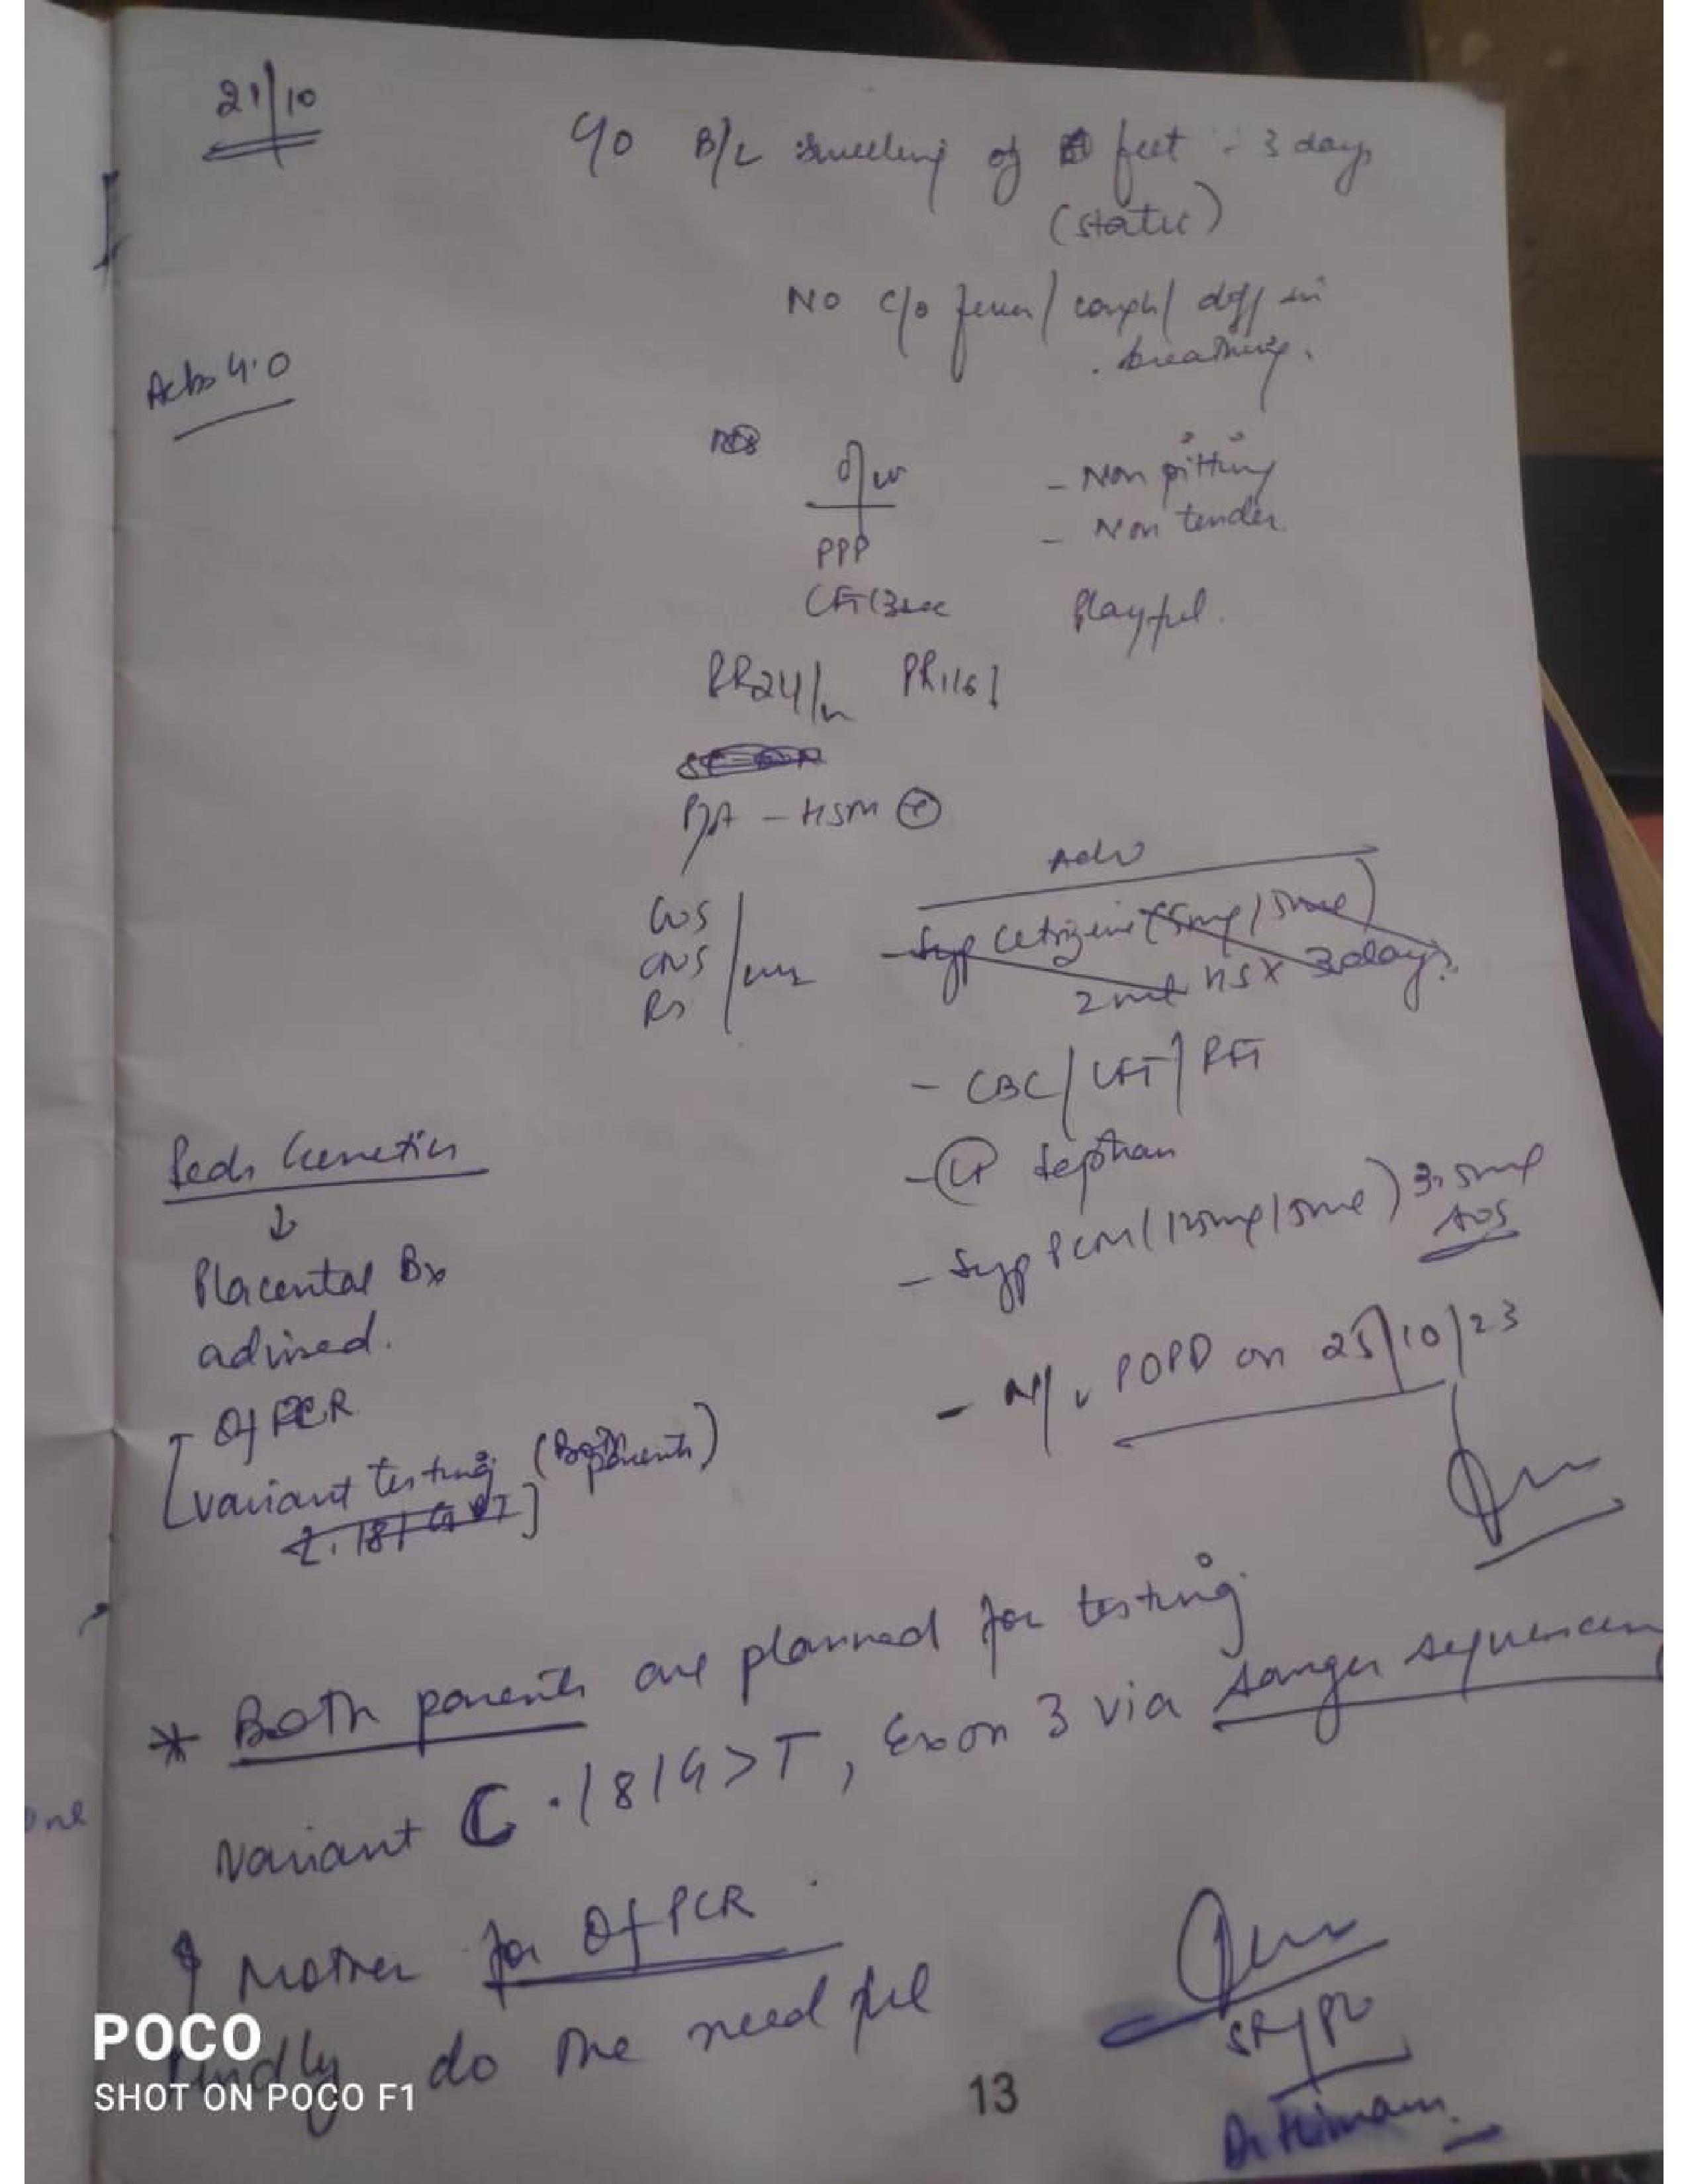 21/10
C/O B/L swelling of feet - 3 days
(static)
No c/o fever / cough / diff in
breathing.
O/W
- Non pitting
- Non tender
PPP
CFT<3sec
Playful.
RR24/m PR116/
P/A - HSM +
CVS
CNS
RS
Adv
- Syp Cetrizine (5mg/5ml)
2ml HS X 3days
- CBC / LFT / RFT
- Septran
- Syp PCM (125mg/5ml) 3.5ml
SOS
- POPD on 25/10/23
Peds Genetics
↓
Placental Bx
advised.
Qf PCR
[variant testing (Both parents)
* Both parents are planned for testing
variant C.181G>T, Exon 3 via sanger sequencing
Mother for Qf PCR
Kindly do the needful
SR/
Dr
13
POCO
SHOT ON POCO F1